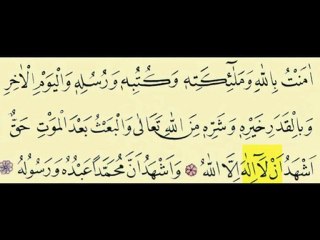 اٰمَنْتُ بِاللّٰهِ وَمَلٰٓئِكَتِهٖ وَكُتُبِهٖ وَرُسُلِهٖ وَالْيَوْمِ الْاٰخِرِ
وَبِالْقَدَرِ خَيْرِهٖ وَشَرِّهٖ مِنَ اللّٰهِ تَعَالٰى وَالْبَعْثُ بَعْدَ الْمَوْتِ حَقٌّ
اَشْهَدُ اَنْ لَٓا اِلٰهَ اِلَّا اللّٰهُ وَاَشْهَدُ اَنَّ مُحَمَّدًا عَبْدُهُ وَرَسُولُهُ